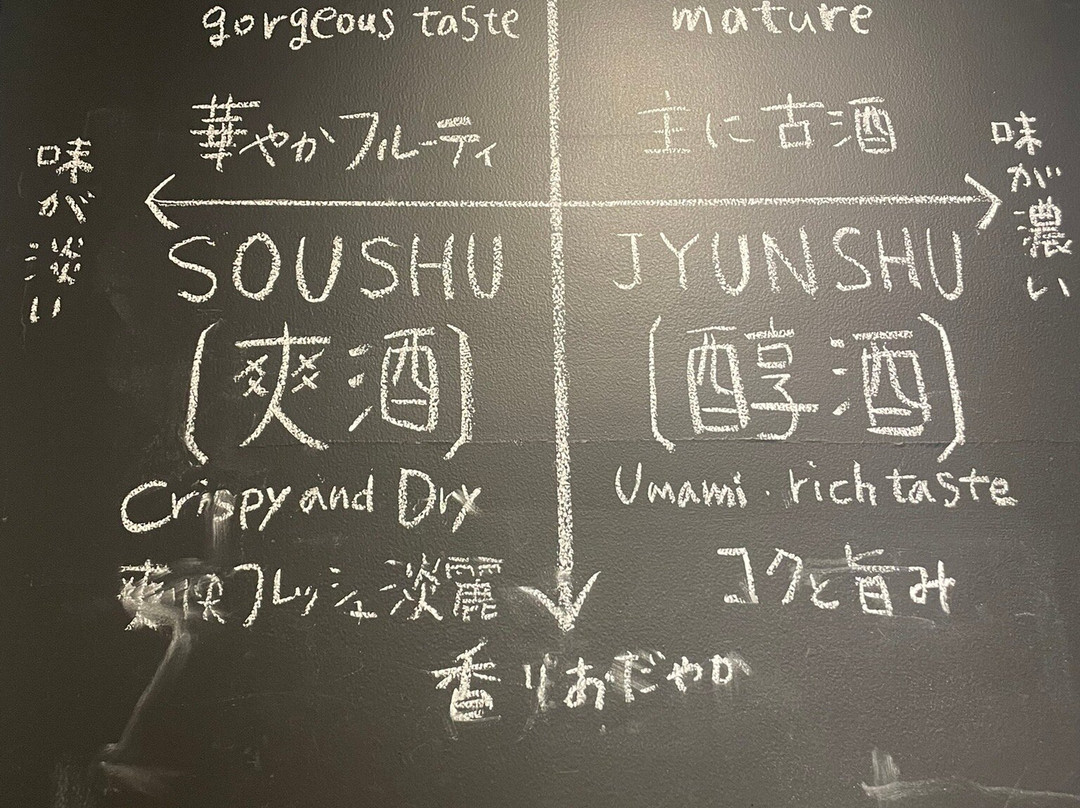 gorgeous taste
mature
華やかフルーティ
主に古酒
味が淡い
味が濃い
SOUSHU
JYUNSHU
(爽酒)
(醇酒)
Crispy and Dry
Umami・rich taste
爽快フレッシュ淡麗
コクと旨み
香りおだやか